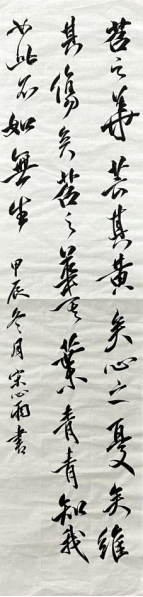 苕之華芸其黃矣心之憂矣維
其傷矣苕之華其葉青青知我
如此不如無生
甲辰冬月宋心雨書